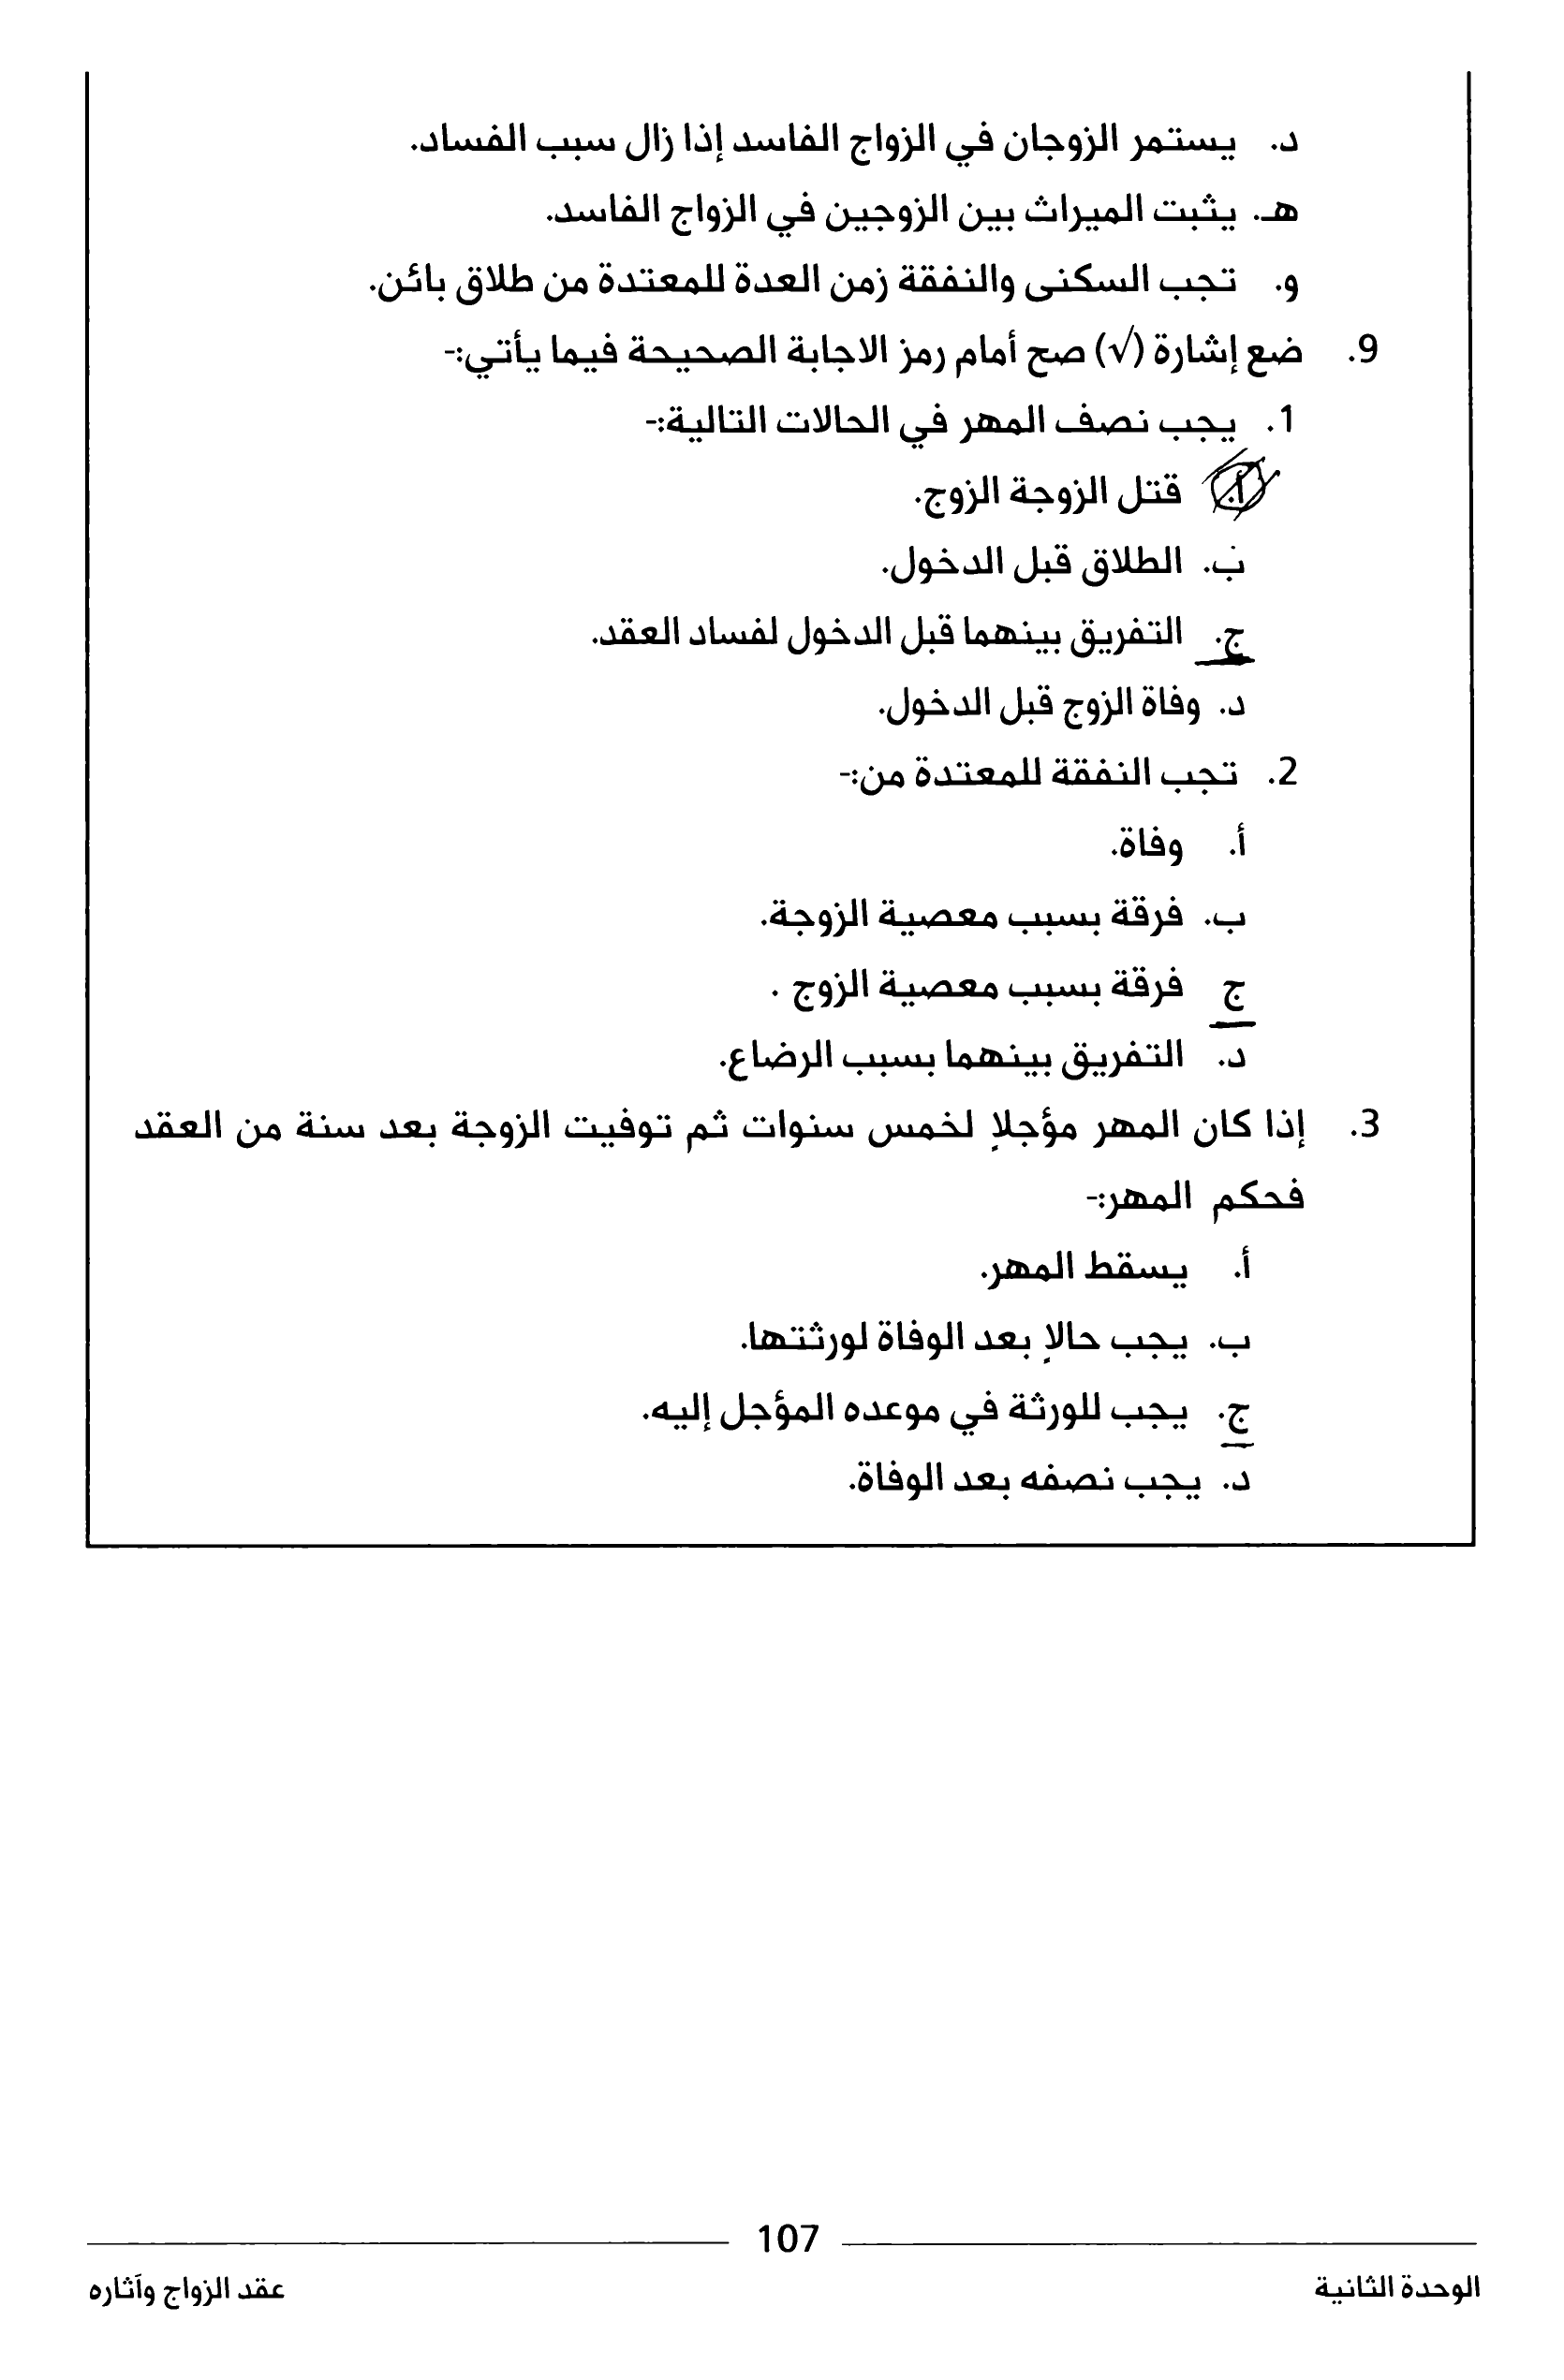 د. يستمر الزوجان في الزواج الفاسد إذا زال سبب الفساد.
هـ. يثبت الميراث بين الزوجين في الزواج الفاسد.
و. تجب السكنى والنفقة زمن العدة للمعتدة من طلاق بائن.
9. ضع إشارة (√) صح أمام رمز الاجابة الصحيحة فيما يأتي:-
1. يجب نصف المهر في الحالات التالية:-
أ. قتل الزوجة الزوج.
ب. الطلاق قبل الدخول.
ج. التفريق بينهما قبل الدخول لفساد العقد.
د. وفاة الزوج قبل الدخول.
2. تجب النفقة للمعتدة من:-
أ. وفاة.
ب. فرقة بسبب معصية الزوجة.
ج فرقة بسبب معصية الزوج .
د. التفريق بينهما بسبب الرضاع.
3. إذا كان المهر مؤجلاٍ لخمس سنوات ثم توفيت الزوجة بعد سنة من العقد
فحكم المهر:-
أ. يسقط المهر.
ب. يجب حالاٍ بعد الوفاة لورثتها.
ج. يجب للورثة في موعده المؤجل إليه.
د. يجب نصفه بعد الوفاة.
107
الوحدة الثانية
عقد الزواج وآثاره